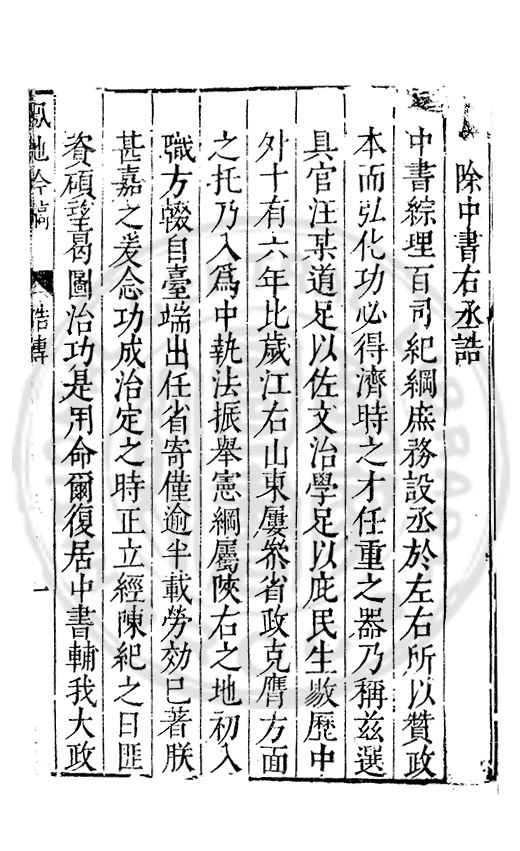 除中書右丞誥
中書綜理百司紀綱庶務設丞於左右所以贊政
本而弘化功必得濟時之才任重之器乃稱茲選
具官汪某道足以佐文治學足以庇民生敭歷中
外十有六年比歲江右山東屢叅省政克膺方面
之托乃入爲中執法振舉憲綱屬陝右之地初入
職方輟自臺端出任省寄僅逾半載勞効已著朕
甚嘉之爰念功成治定之時正立經陳紀之日匪
資碩望曷圖治功是用命爾復居中書輔我大政
誥傳
一